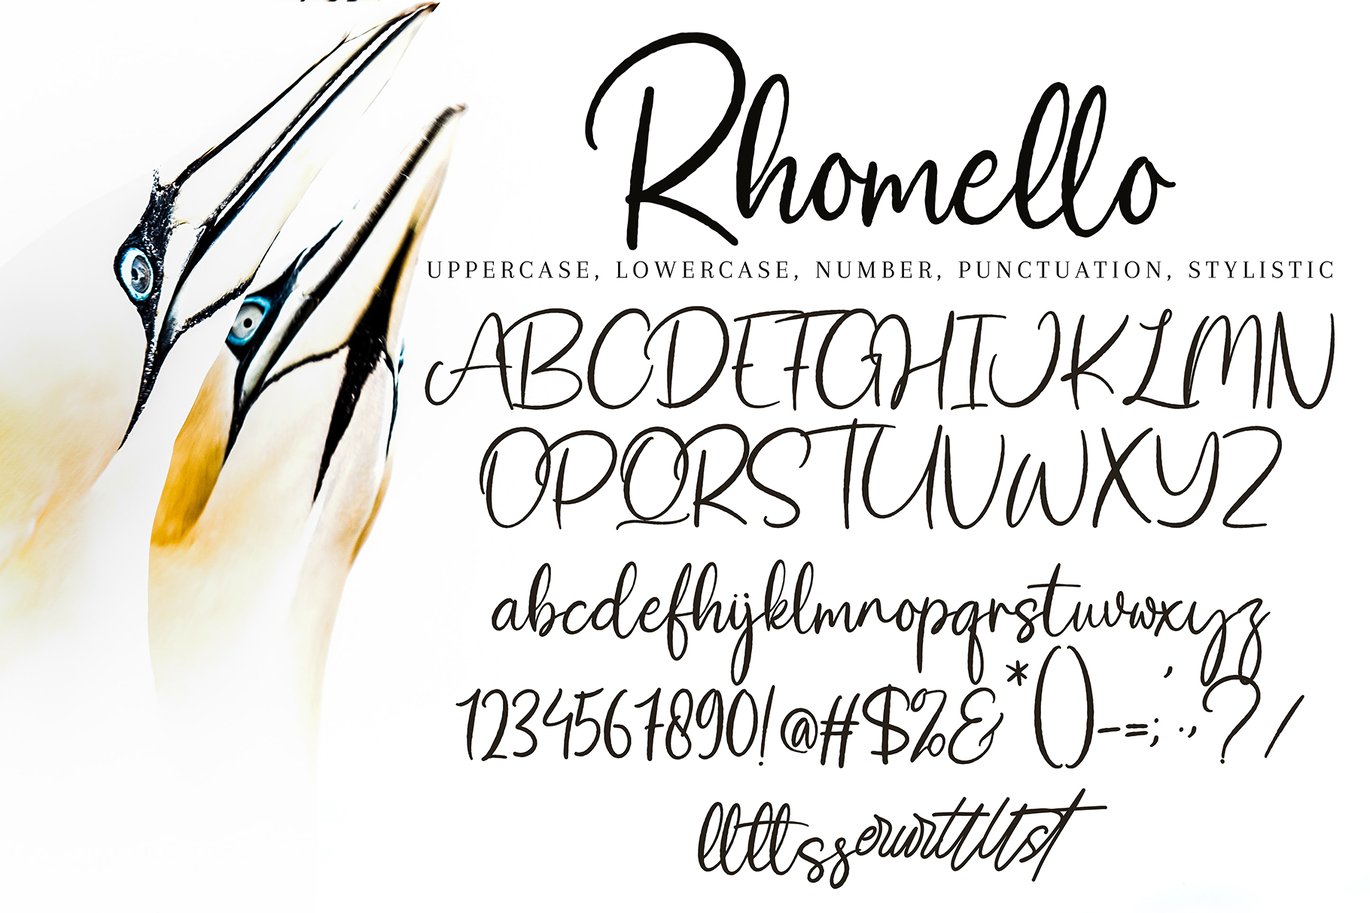 Rhomello
UPPERCASE, LOWERCASE, NUMBER, PUNCTUATION, STYLISTIC
ABCDEFGHIJKLMN
OPQRSTUVWXYZ
abcdefghijklmnopqrstuvwxyz
1234567890!@#$%&*()-=;'.,?/